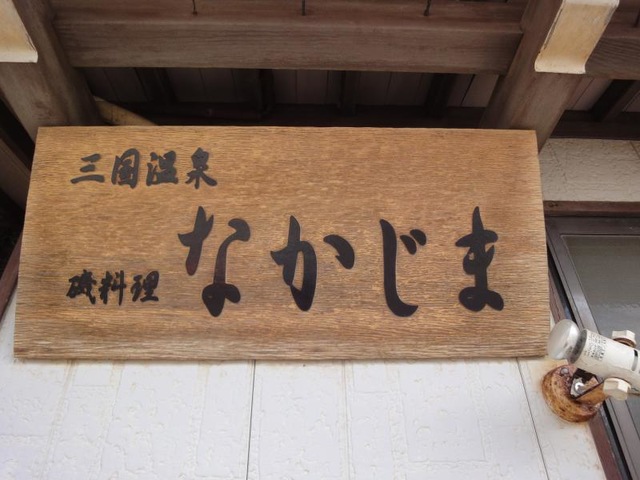 三国温泉
磯料理 なかじま